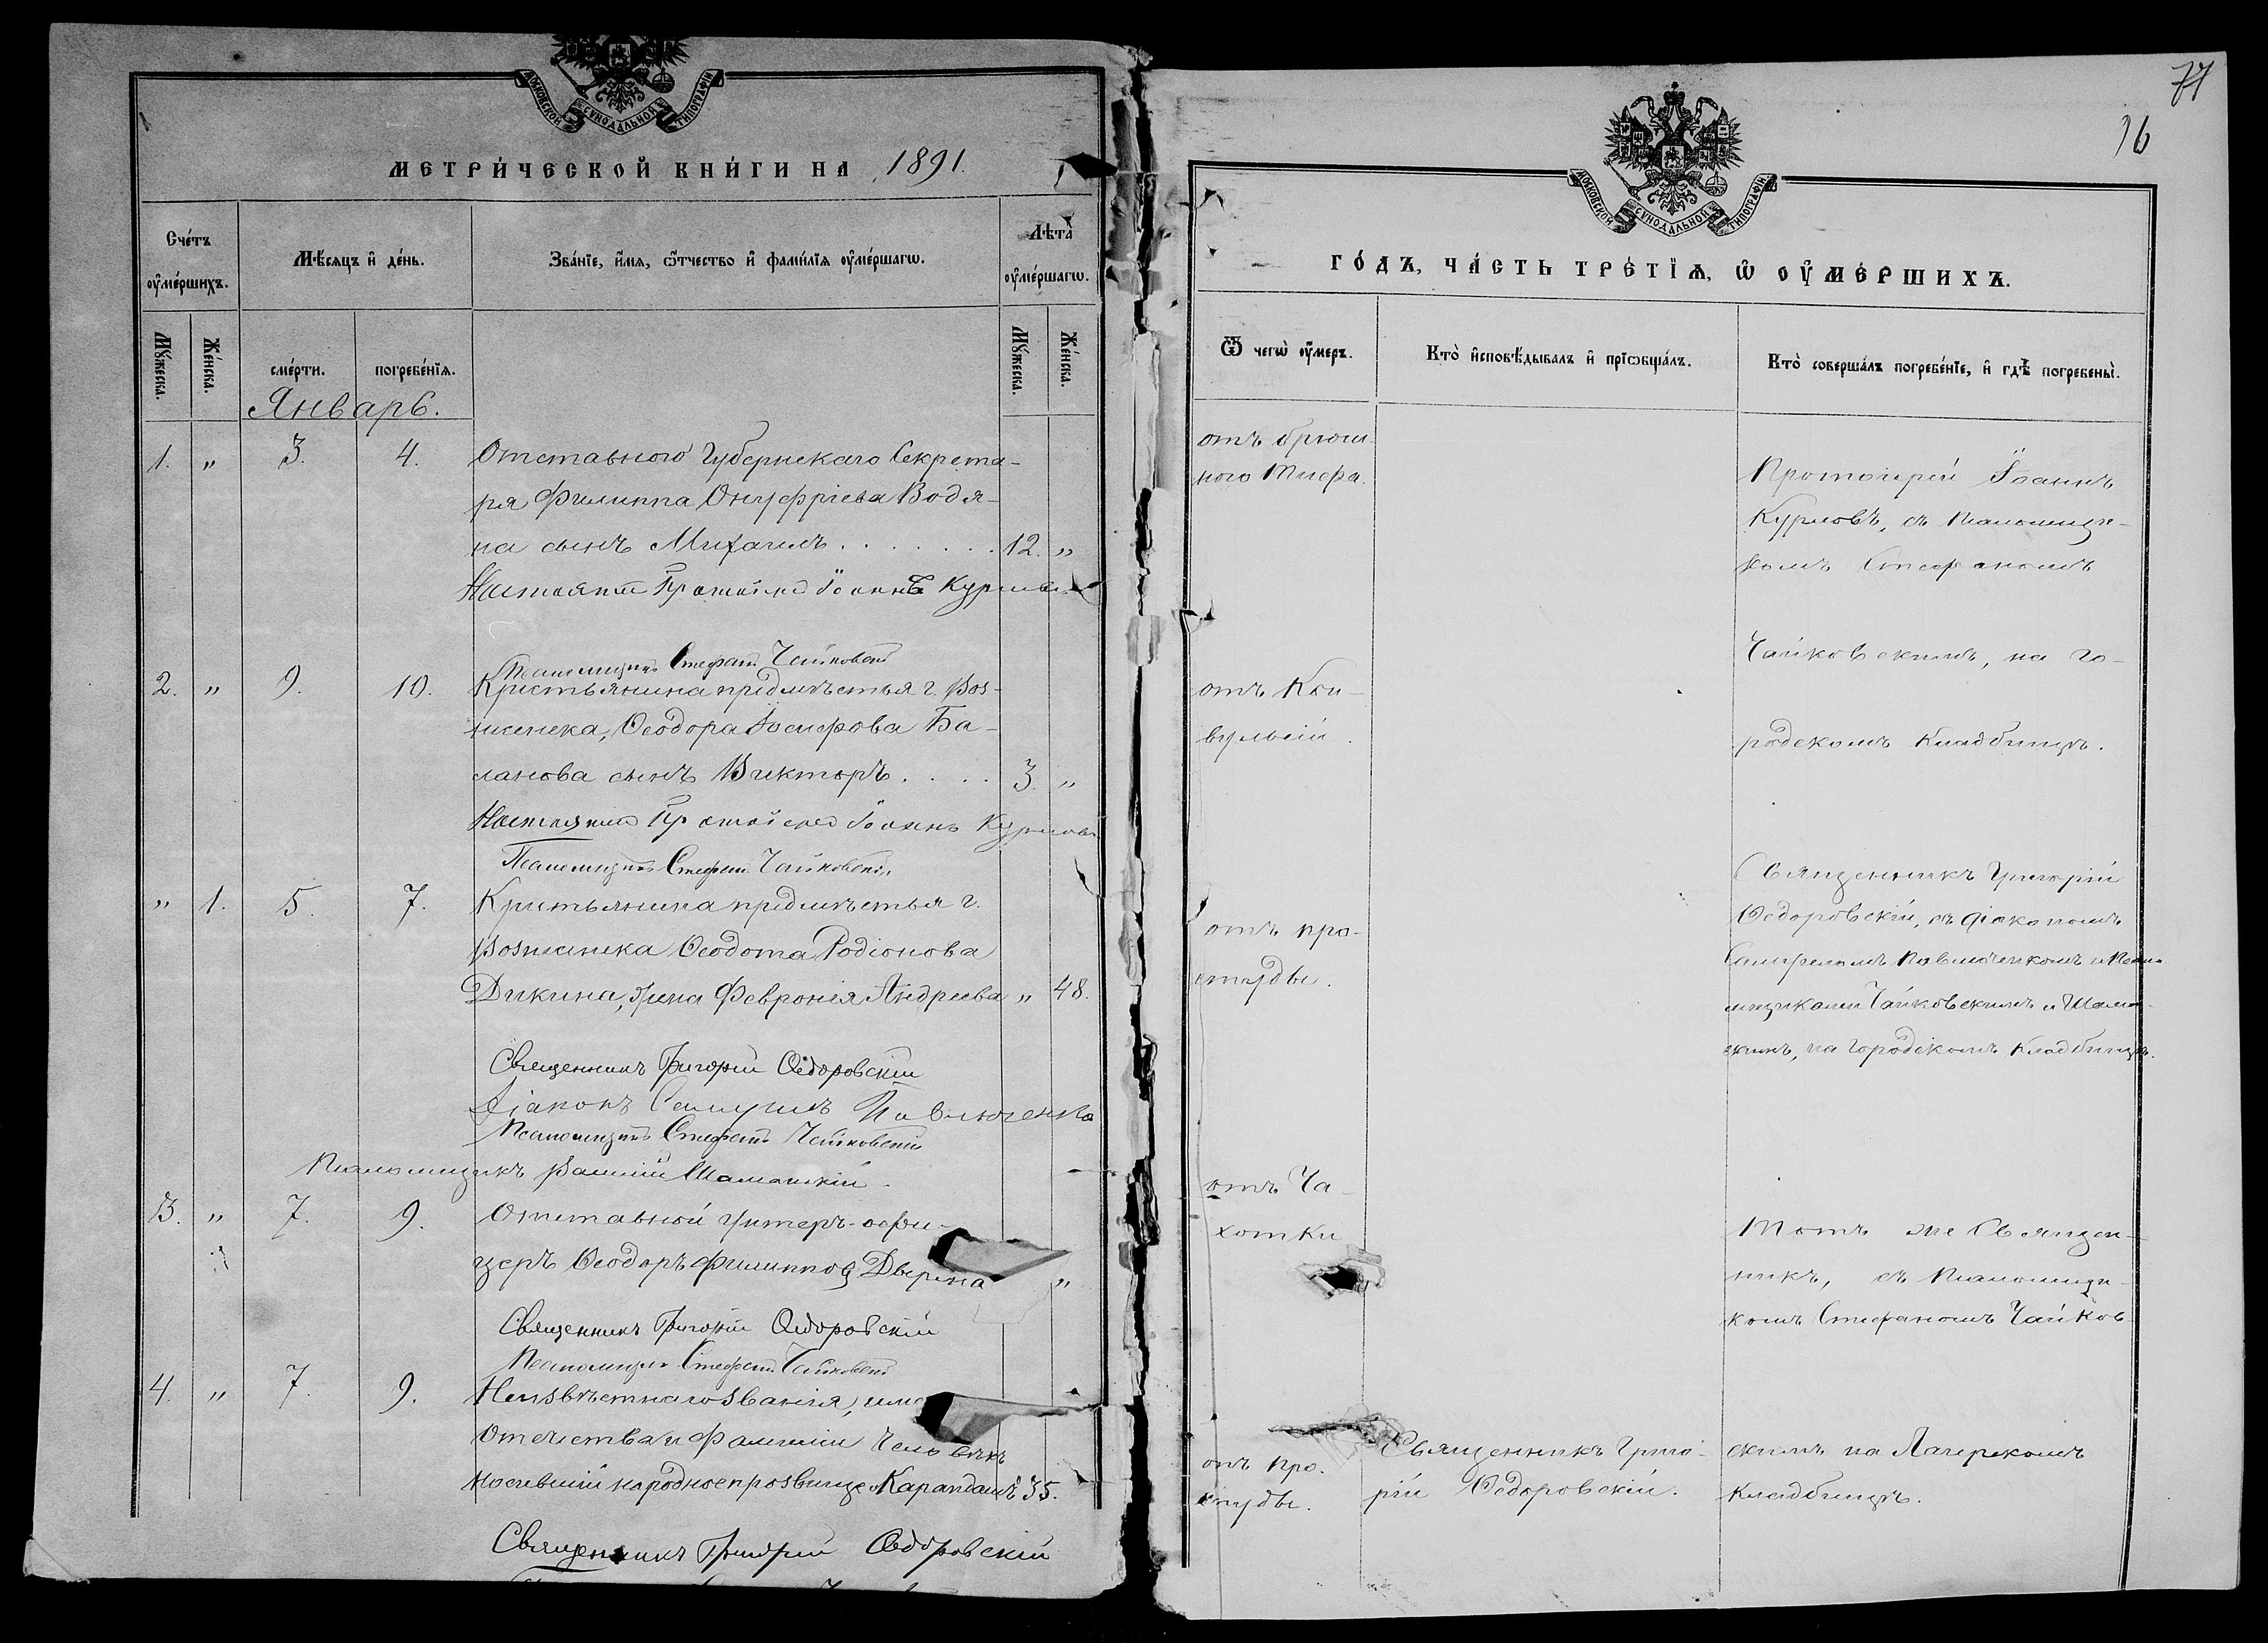 МОСКОВСКОЙ СѴНОДАЛЬНОЙ ТИПОГРАФІИ
МЕТРИ́ЧЕСКОЙ КНИ́ГИ НА 1891.
Сче́тъ оу҆ме́ршихъ.
Мѣ́сяцъ и҆ де́нь.
Зва́нїе, и҆́мя, ѻ҆́тчество и҆ фами́лїя оу҆ме́ршагѡ.
Лѣ́та оу҆ме́ршагѡ.
Мꙋ́жеска.
Же́нска.
сме́рти.
погребе́нїя.
Мꙋ́жеска.
Же́нска.
Январь.
1. „ 3. 4. Отставного Губернскаго Секрета-
ря Филиппа Онуфріева Водя-
на сынъ Михаилъ . . . . . . . 12. „
Настоятель Протоіерей Іоаннъ Курловъ
Псаломщикъ Стефанъ Чайковскій
2. „ 9. 10. Крестьянина предмѣстья г. Воз-
несенска, Ѳеодора Іосифова Ба-
ланова сынъ Викторъ . . . . 3. „
Настоятель Протоіерей Іоаннъ Курловъ
Псаломщикъ Стефанъ Чайковскій
„ 1. 5. 7. Крестьянина предмѣстья г.
Вознесенска Ѳеодота Родіонова
Дикина, жена Февронія Андреева „ 48.
Священникъ Григорій Ѳедоровскій
Діаконъ Самуилъ Павлюченко
Псаломщикъ Стефанъ Чайковскій
Псаломщикъ Шаманскій
3. „ 7. 9. Отставной Унтеръ-офи-
церъ Ѳеодоръ Филиппов „
Священникъ Григорій Ѳедоровскій
Псаломщикъ Стефанъ Чайковскій
4. „ 7. 9. Неизвѣстнаго званія,
отечества и фамиліи человѣкъ
носившій народное прозвище „Карандашъ“ 35.
Священникъ Григорій Ѳедоровскій
77
76
МОСКОВСКОЙ СѴНОДАЛЬНОЙ ТИПОГРАФІИ
ГО́ДЪ, ЧА́СТЬ ТРЕ́ТЇѦ, Ѡ҆ ОУ҆МЕ́РШИХЪ.
Ѿ чегѡ̀ оу҆́меръ.
Кто̀ и҆сповѣ́дывалъ и҆ прїѡбща́лъ.
Кто̀ соверша́лъ погребе́нїе, и҆ гдѣ̀ погребены̀.
отъ брюш-
ного Тифа.
Протоіерей Іоаннъ
Курловъ, съ Псаломщи-
комъ Стефаномъ
Чайковскимъ, на го-
родскомъ кладбищѣ.
отъ Кон-
вульсіи.
отъ про-
студы.
Священникъ Григорій
Ѳедоровскій, съ діакономъ
Самуиломъ Павлюченкомъ и Псало-
мщиками Чайковскимъ и Шаман-
скимъ, на городскомъ кладбищѣ.
отъ Ча-
хотки
Тотъ же Священ-
никъ, съ Псаломщи-
комъ Стефаномъ Чайков-
скимъ на Лагерскомъ
кладбищѣ.
отъ про-
студы.
Священникъ Григо-
рій Ѳедоровскій.